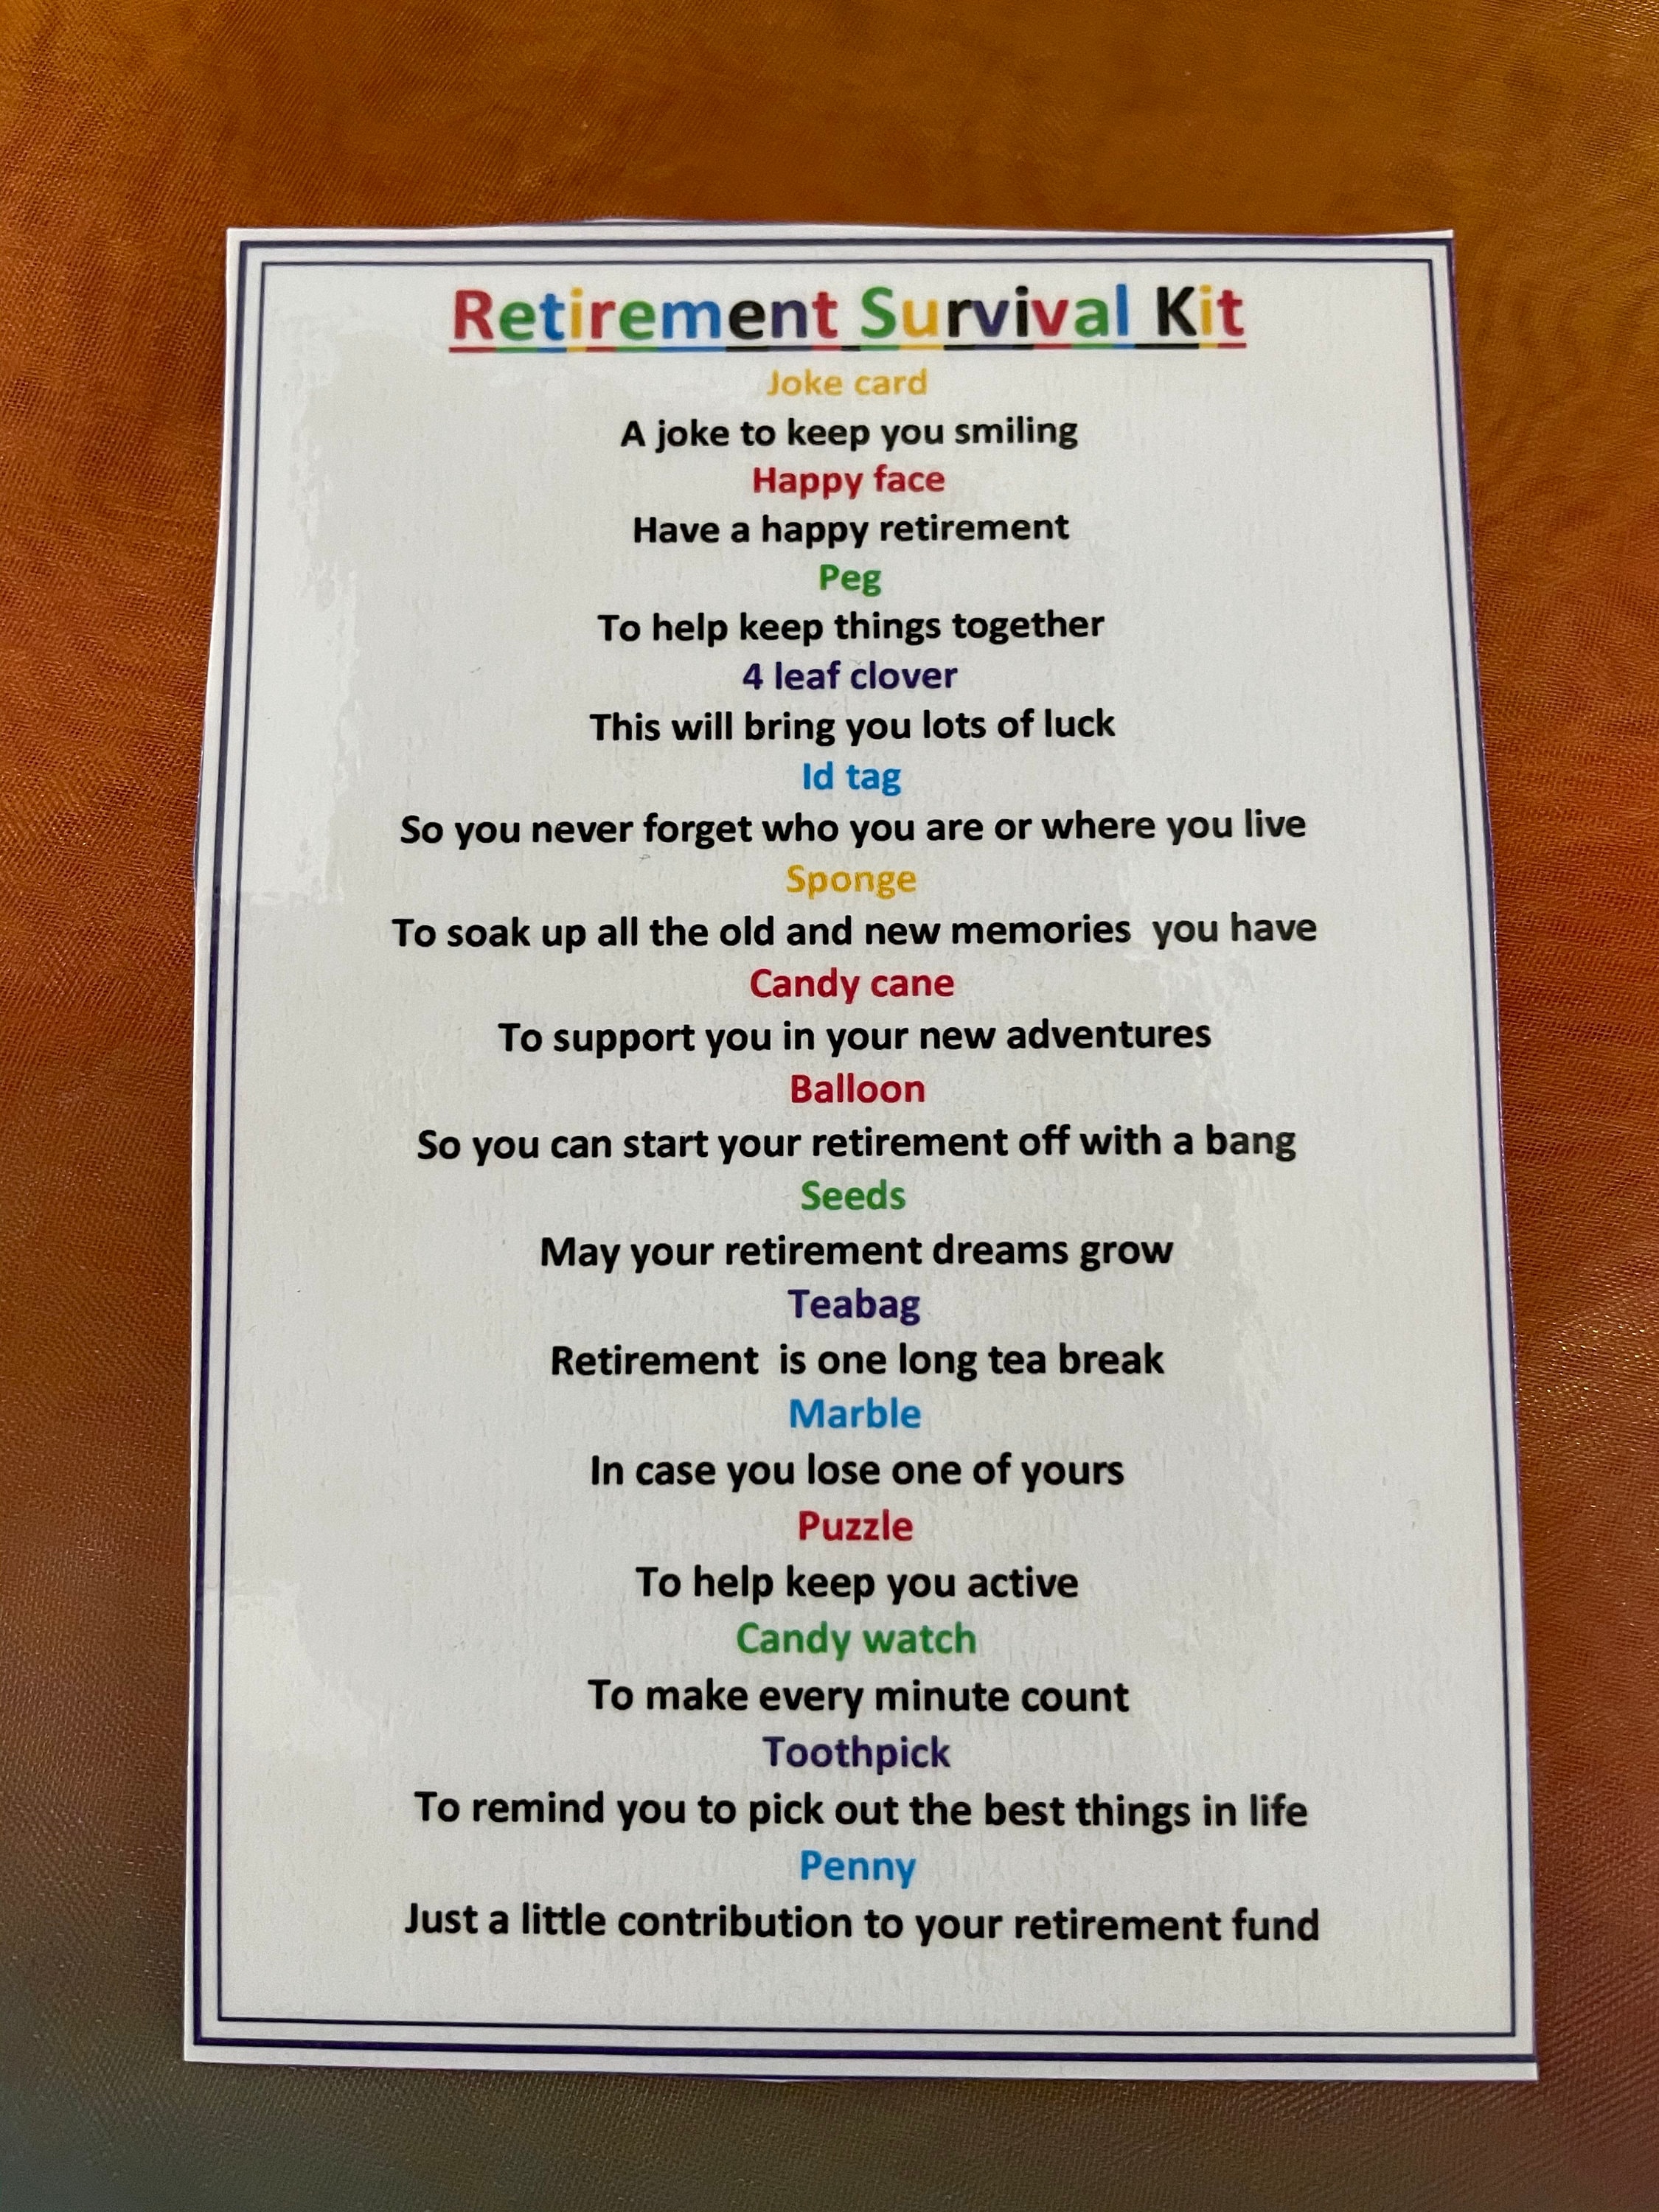 Retirement Survival Kit
Joke card
A joke to keep you smiling
Happy face
Have a happy retirement
Peg
To help keep things together
4 leaf clover
This will bring you lots of luck
Id tag
So you never forget who you are or where you live
Sponge
To soak up all the old and new memories  you have
Candy cane
To support you in your new adventures
Balloon
So you can start your retirement off with a bang
Seeds
May your retirement dreams grow
Teabag
Retirement  is one long tea break
Marble
In case you lose one of yours
Puzzle
To help keep you active
Candy watch
To make every minute count
Toothpick
To remind you to pick out the best things in life
Penny
Just a little contribution to your retirement fund